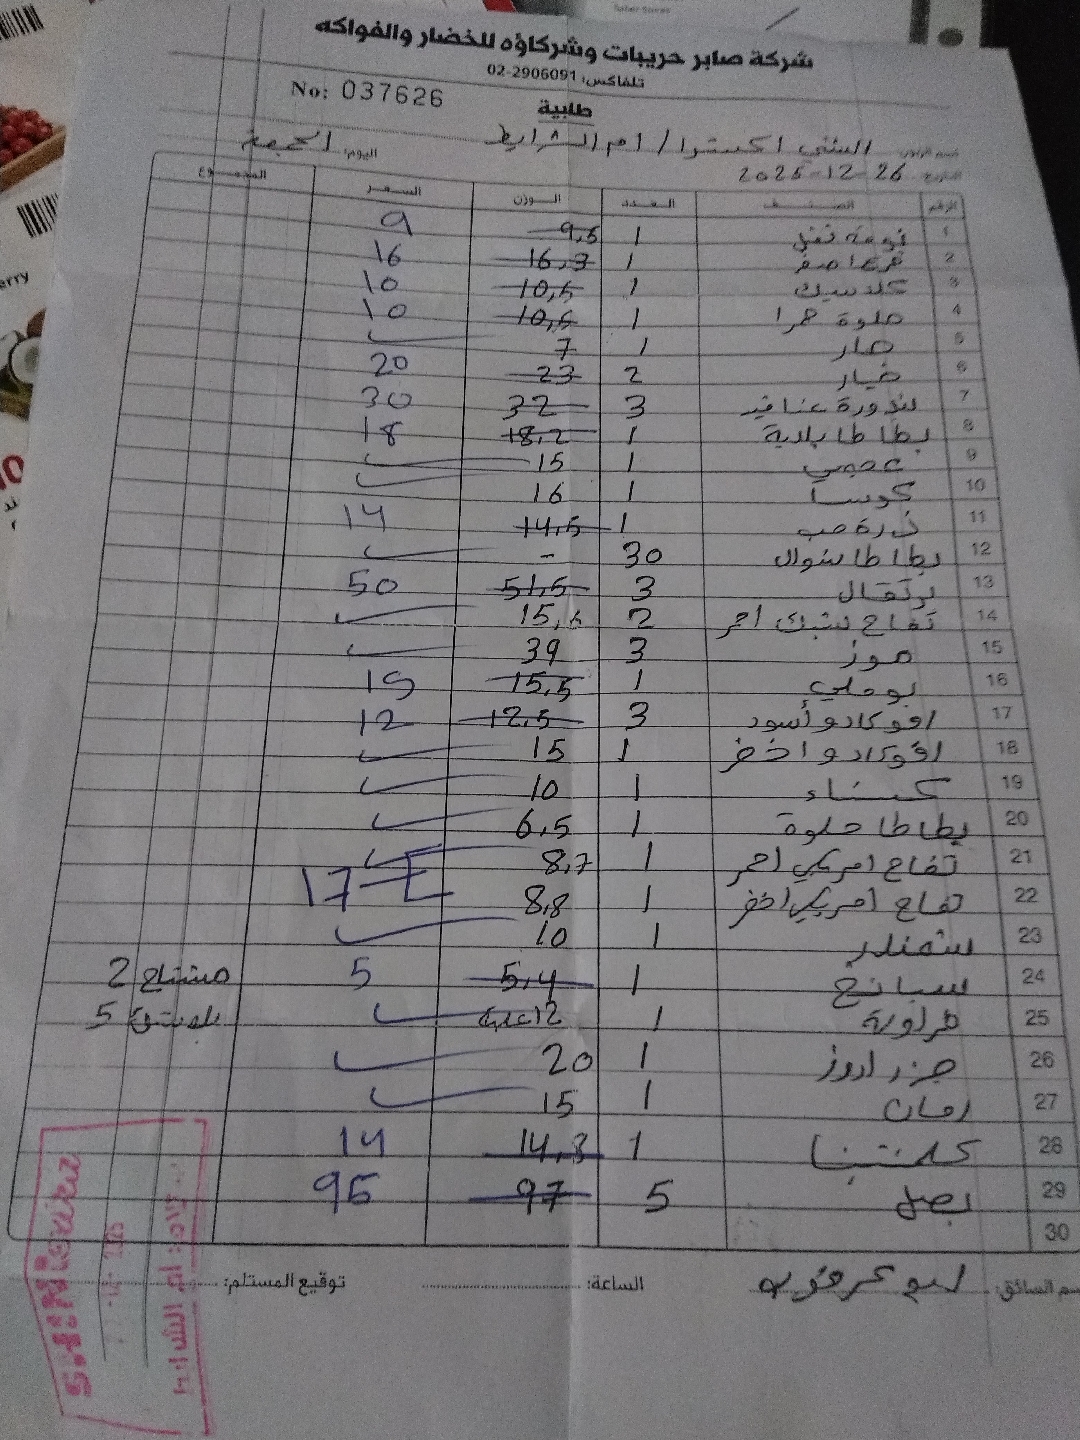 شركة صابر حريبات وشركاؤه للخضار والفواكه
تلفاكس: 02-2906091
No: 037626
طلبية
الشني اكسترا / ام الشرايط اليوم: الجمعة
التاريخ 26-12-2025
الرقم الصنف العدد الوزن السعر المجموع
1 ثومة تفل 1 9,5 9
2 قرع اصفر 1 16,3 16
3 كلاسيك 1 10,5 10
4 حلوة حمرا 1 10,5 10
5 حار 1 7
6 خيار 2 23 20
7 بندورة عناقيد 3 32 30
8 بطاطا بلدية 1 18,2 18
9 عجمي 1 15
10 كوسا 1 16
11 ذرة حب 1 14,5 14
12 بطاطا شوال 30 -
13 برتقال 3 51,5 50
14 تفاح شبك احمر 2 15,6
15 موز 3 39
16 بوملي 1 15,5 15
17 افوكادو أسود 3 12,5 12
18 افوكادو اخضر 1 15
19 كستناء 1 10
20 بطاطا حلوة 1 6,5
21 تفاح امريكي احمر 1 8,7
22 تفاح امريكي اخضر 1 8,8 17
23 شمندر 1 10
24 سبانخ 1 5,4 5 مشتاح 2
25 فراولة 1 12 علبة بلاستيك 5
26 جزر اروز 1 20
27 رمان 1 15
28 كلمنتينا 1 14,3 14
29 بصل 5 97 95
30
اسم السائق: الساعة: توقيع المستلم: